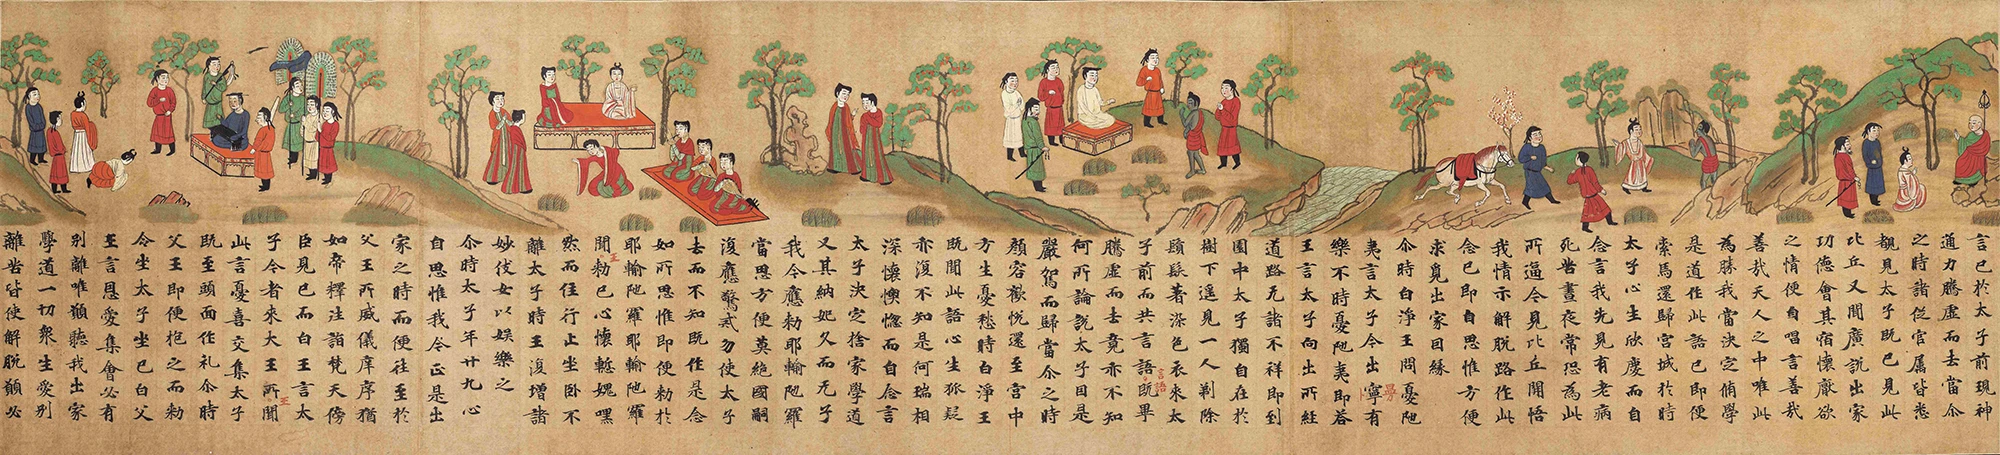 言已於太子前現神
道力騰虛而去當尒
之時諸從官属皆悉
覩見太子既已見此
比丘又聞廣說出家
功德會其宿懷厭欲
之情便自唱言善哉
善哉天人之中唯此
為勝我當決定脩學
是道作此語已即便
索馬還歸宮城於時
太子心生欣慶而自
念言我先見有老病
死苦晝夜常恐為此
所逼今見比丘開悟
我情示解脫路作此
念已即自思惟方便
求覓出家因緣
尒時白淨王問憂陁
夷言太子今出寧有
樂不時憂陁夷即荅
王言太子向出所經
道路无諸不祥即到
園中太子獨自在於
樹下遥見一人剃除
鬚髮著染色衣來太
子前而共言語既畢
言語
騰虛而去竟亦不知
何所論說太子因是
嚴駕而歸當尒之時
顏容歡悅還至宮中
方生憂愁時白淨王
既聞此語心生狐疑
亦復不知是何瑞相
深懷懊惱而自念言
太子決定捨家學道
又其納妃久而无子
我今應勑耶輸陁羅
當思方便莫絕國嗣
復應警戒勿使太子
去而不知既作是念
如所思惟即便勑於
耶輸陁羅耶輸陁羅
王
聞勑已心懷慙愧嘿
然而住行止坐卧不
離太子時王復增諸
妙伎女以娱樂之
尒時太子年廿九心
自思惟我今正是出
家之時而便往至於
父王所威儀庠序猶
如帝釋往詣梵天傍
臣見已而白王言太
子今者來大王所聞
王
此言憂喜交集太子
既至頭面作礼尒時
父王即便抱之而勑
令坐太子坐已白父
王言恩愛集會必有
別離唯願聽我出家
學道一切衆生愛別
離苦皆使解脫願必